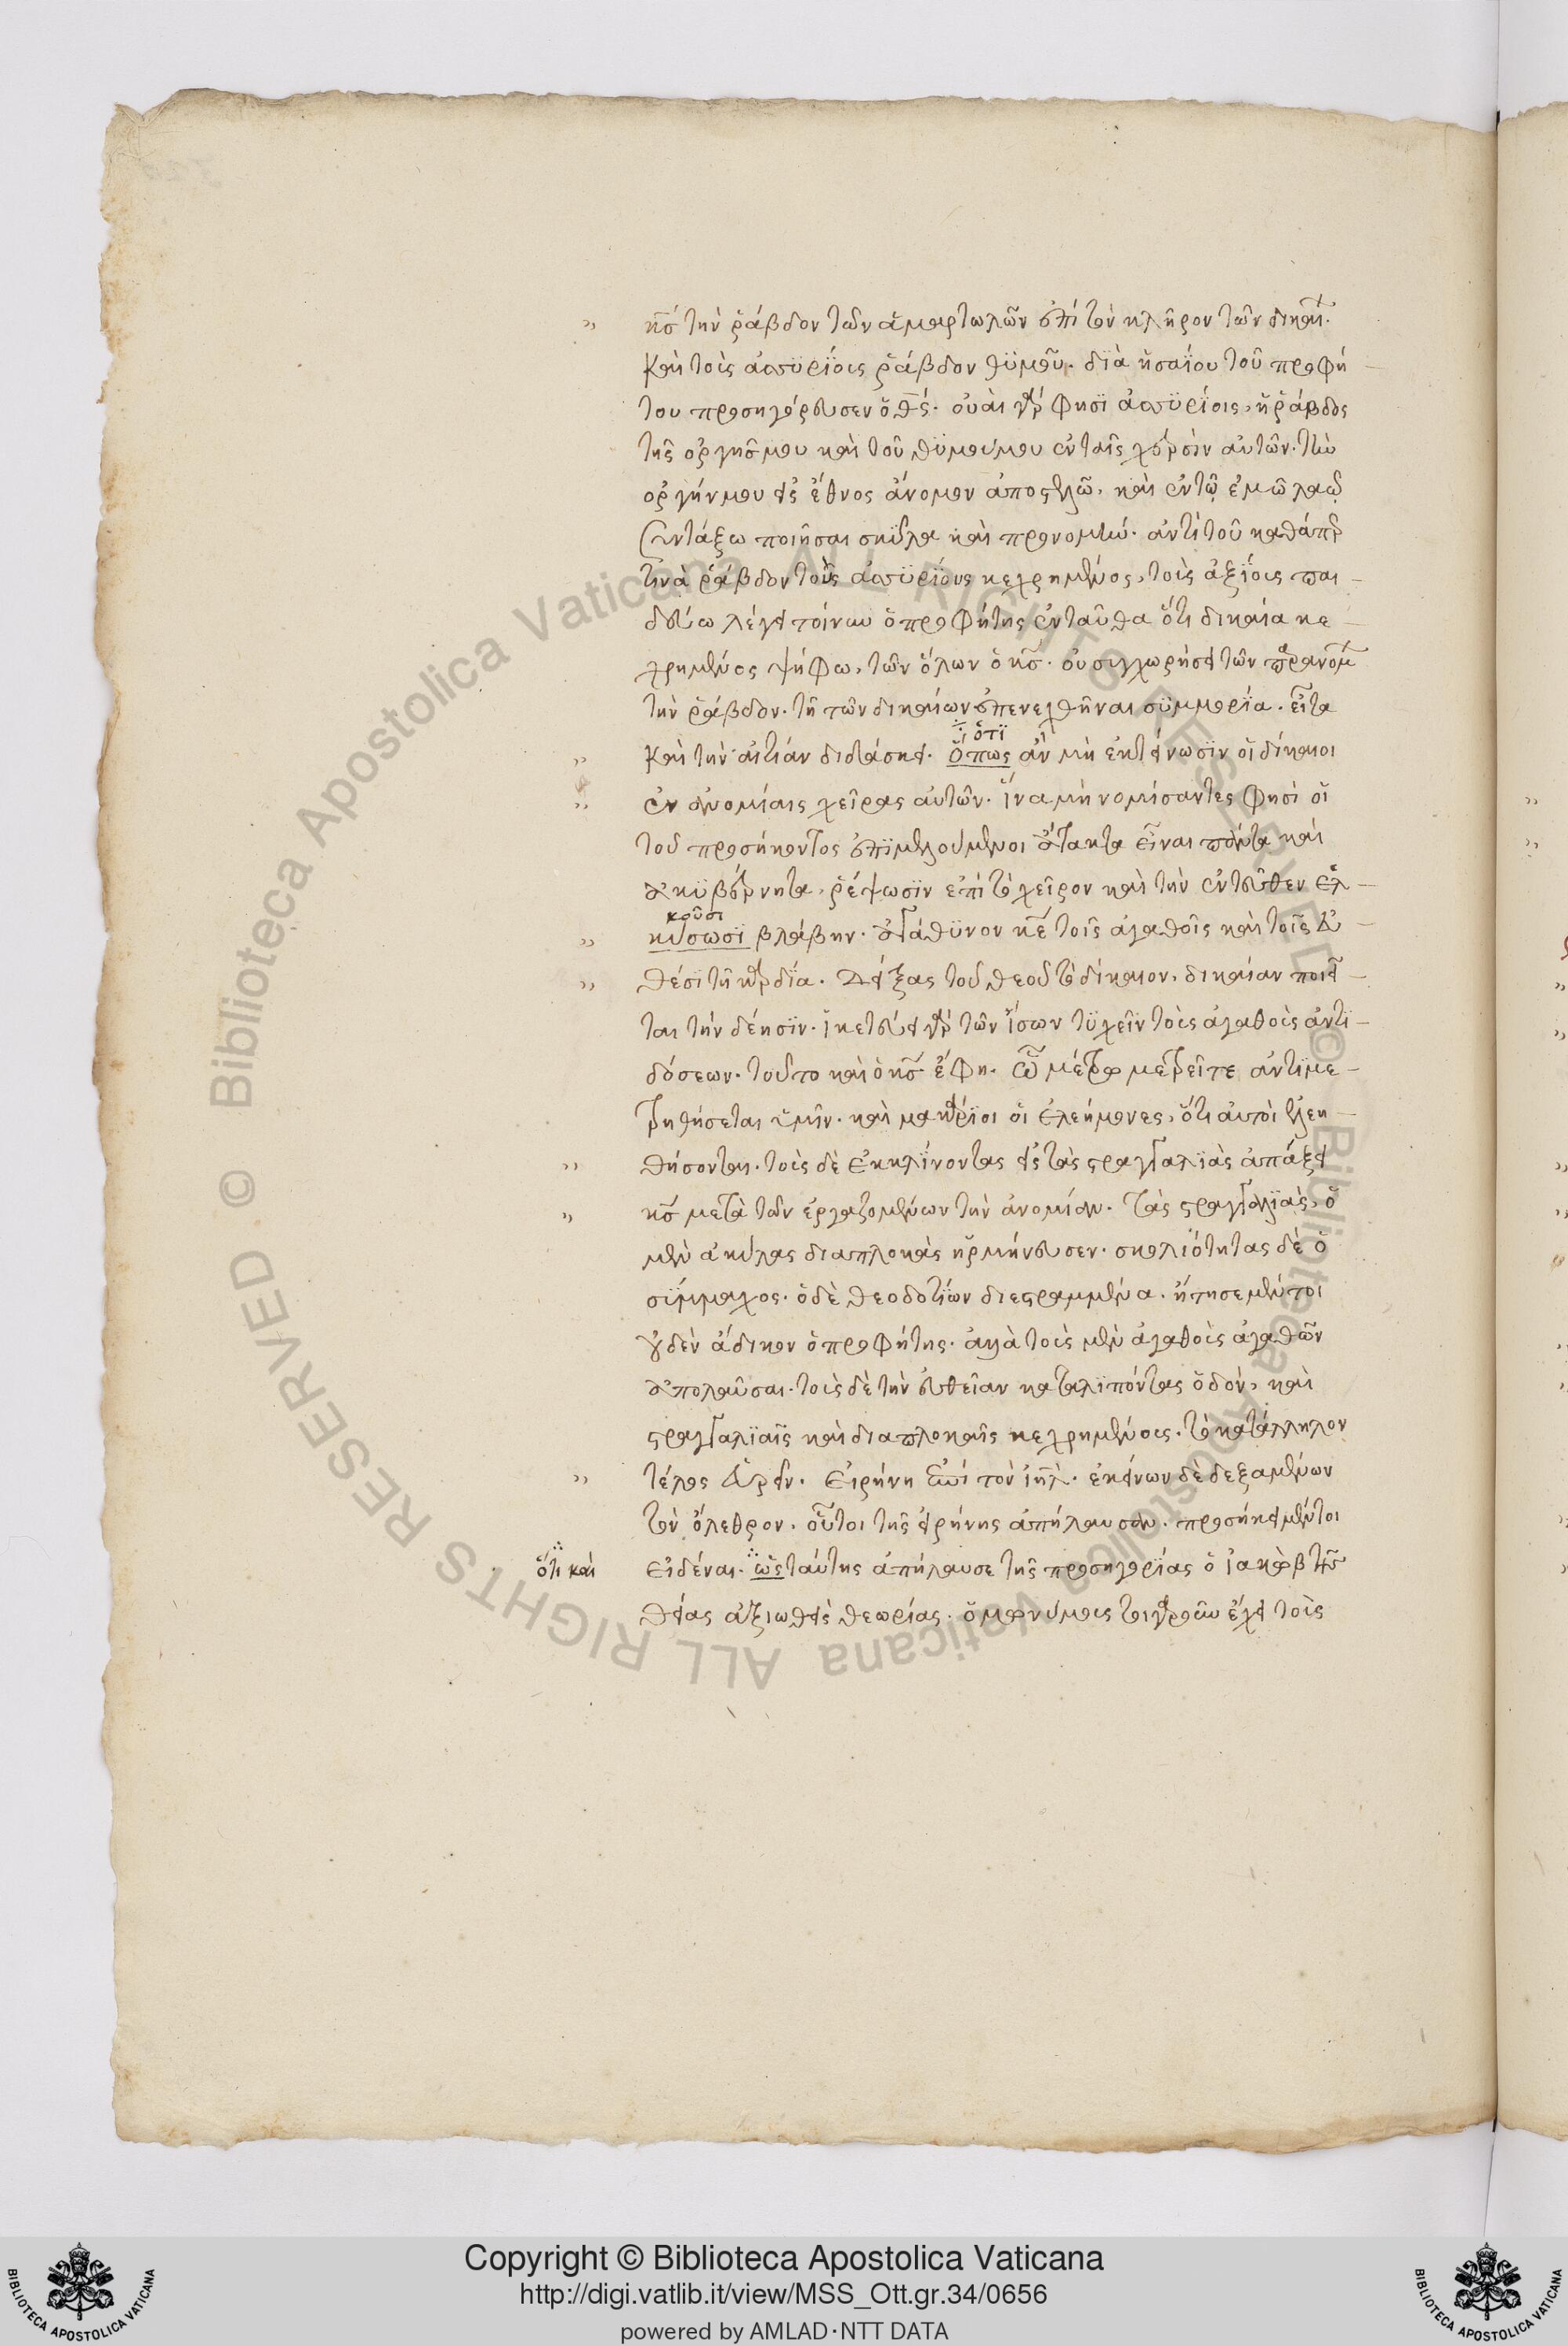 κ̅ς̅ τὴν ῥάβδον τῶν ἁμαρτωλῶν ἐπὶ τὸν κλῆρον τῶν δικαί.
καὶ τοῖς ἀσσυρίοις ῥάβδον θυμοῦ. διὰ ἠσαΐου τοῦ προφή
του προσηγόρευσεν ὁ θ̅ς̅. οὐαὶ γάρ φησι ἀσσυρίοις, ἡ ῥάβδος
τῆς ὀργῆς μου καὶ τοῦ θυμοῦ μου ἐν ταῖς χερσὶν αὐτῶν. τὴν
ὀργήν μου εἰς ἔθνος ἄνομον ἀποστελῶ, καὶ ἐν τῷ ἐμῷ λαῷ
συντάξω ποιῆσαι σκῦλα καὶ προνομήν. ἀντὶ τοῦ καθάπερ
τινὰ ῥάβδον τοῖς ἀσσυρίοις κεχρημένος, τοῖς ἀξίοις παι-
δεύω λέγει τοίνυν ὁ προφήτης ἐνταῦθα ὅτι δικαία κε-
χρημένος ψήφω, τῶν ὅλων ὁ κ̅ς̅. οὐ συγχωρήσει τῶν παρανόμ
τὴν ῥάβδον. τῇ τῶν δικαίων ἐπενεχθῆναι συμμορία. εἶτα
ὅτι
καὶ τὴν αἰτίαν διδάσκει. ὅπως ἂν μὴ ἐκτείνωσιν οἱ δίκαιοι
ἐν ἀνομίαις χεῖρας αὐτῶν. ἵνα μὴ νομίσαντες φησὶ οἱ
τοῦ προσήκοντος ἐπιμελούμενοι ἄτακτα εἶναι πάντα καὶ
ἀκυβέρνητα, ῥέψωσιν ἐπὶ τὸ χεῖρον καὶ τὴν ἐντεῦθεν ἑλ-
κοῦσι
κύσωσι βλάβην. ἀγάθυνον κ̅ε̅ τοῖς ἀγαθοῖς καὶ τοῖς εὐ-
θέσι τῇ καρδία. δείξας τοῦ θεοῦ τὸ δίκαιον, δικαίαν ποιεῖ-
ται τὴν δέησιν. ἱκετεύει γὰρ τῶν ἴσων τυχεῖν τοῖς ἀγαθοῖς ἀντι-
δόσεων. τοῦτο καὶ ὁ κ̅ς̅ ἔφη. ᾧ μέτρω μετρεῖτε ἀντιμε-
τρηθήσεται ὑμῖν. καὶ μακάριοι οἱ ἐλεήμονες, ὅτι αὐτοὶ ἐλεη-
θήσονται. τοὺς δὲ ἐκκλίνοντας εἰς τὰς στραγγαλιὰς ἀπάξει
κ̅ς̅ μετὰ τῶν ἐργαζομένων τὴν ἀνομίαν. τὰς στραγγαλιὰς, ὁ
μὲν ἀκύλας διαπλοκὰς ἡρμήνευσεν. σκολιότητας δὲ ὁ
σύμμαχος. ὁ δὲ θεοδοτίων διεστραμμένα. ᾔτησε μέντοι
οὐδὲν ἄδικον ὁ προφήτης. ἀλλὰ τοῖς μὲν ἀγαθοῖς ἀγαθῶν
ἀπολαῦσαι. τοῖς δὲ τὴν εὐθεῖαν καταλιπόντας ὁδὸν, καὶ
στραγγαλιαῖς καὶ διαπλοκαῖς κεχρημένοις. τὸ κατάλληλον
τέλος εὑρεῖν. εἰρήνη ἐπὶ τὸν ἰ̅η̅λ̅. ἐκείνων δὲ δεξαμένων
τὸν ὄλεθρον. οὗτοι τῆς εἰρήνης ἀπήλαυσαν. προσήκει μέντοι
ὅτι καὶ
εἰδέναι. ὡς ταύτης ἀπήλαυσε τῆς προσηγορίας ὁ ἰακὼβ τῆς
θείας ἀξιωθεὶς θεωρίας. ὁμωνύμοις τοιγαροῦν ἔχει τοῖς
Copyright © Biblioteca Apostolica Vaticana
http://digi.vatlib.it/view/MSS_Ott.gr.34/0656
powered by AMLAD·NTT DATA
BIBLIOTECA APOSTOLICA VATICANA
BIBLIOTECA APOSTOLICA VATICANA
© Biblioteca Apostolica Vaticana ALL RIGHTS RESERVED
© Biblioteca Apostolica Vaticana ALL RIGHTS RESERVED